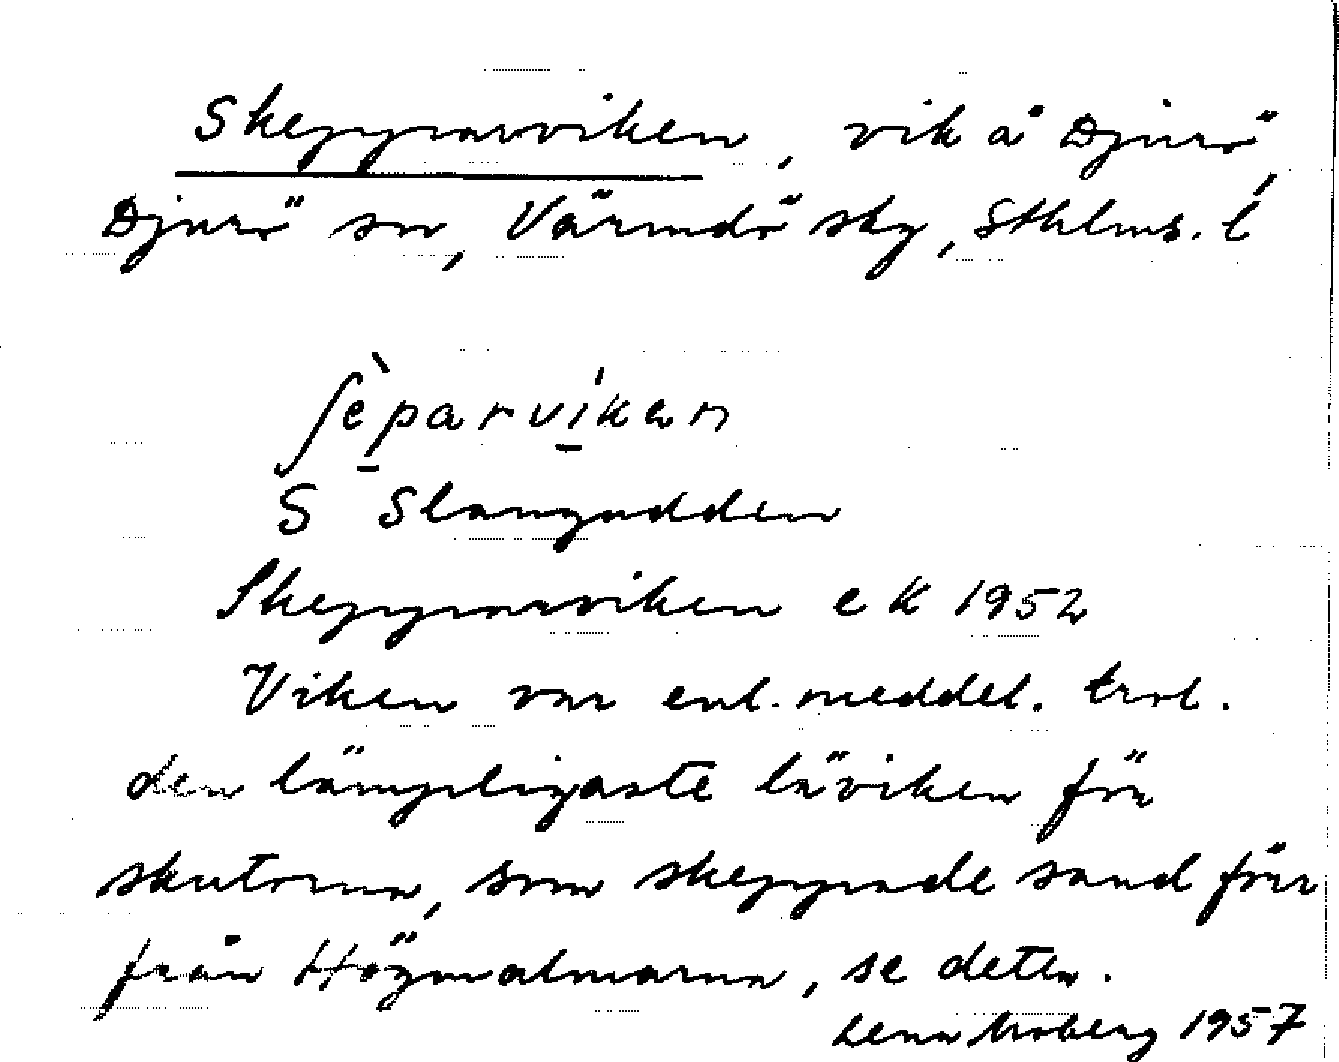 Skepparviken, vik å Djurö,
Djurö sn, Värmdö sky, Sthlms. l
ʃèparvikən
S Slangudden
Skepparviken e K 1952
Viken var enl. meddel. trol.
den lämpligaste läviken för
skutorna, som skeppade sand förr
från Högmalmarna, se deta.
Lena Moberg 1957